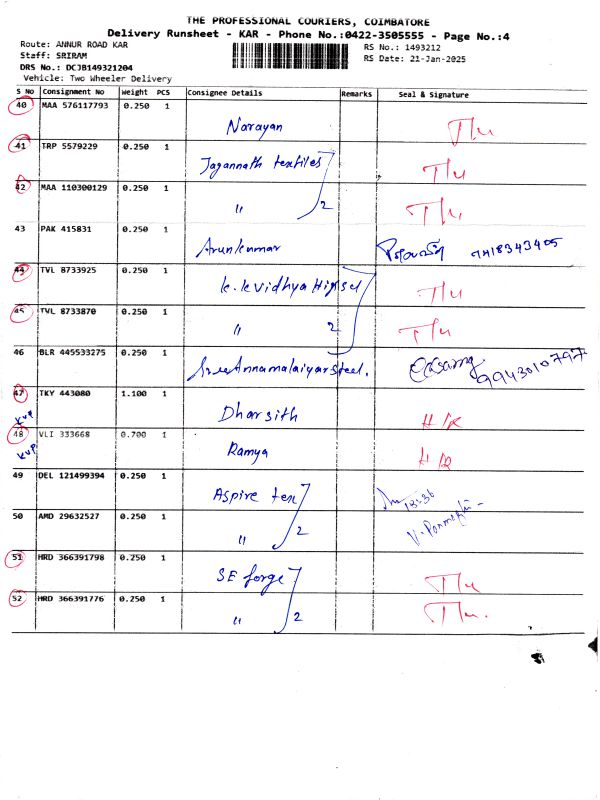 THE PROFESSIONAL COURIERS, COIMBATORE
Delivery Runsheet - KAR - Phone No.:0422-3505555 - Page No.:4
Route: ANNUR ROAD KAR RS No.: 1493212
Staff: SRIRAM RS Date: 21-Jan-2025
DRS No.: DCJB149321204
Vehicle: Two Wheeler Delivery
S No Consignment No Weight PCS Consignee Details Remarks Seal & Signature
40 MAA 576117793 0.250 1 Narayan T/u
41 TRP 5579229 0.250 1 Jagannath textiles T/u
42 MAA 110300129 0.250 1 " 2 T/u
43 PAK 415831 0.250 1 Arunkumar
44 TVL 8733925 0.250 1 T/u
45 TVL 8733870 0.250 1 " 2 T/u
46 BLR 445533275 0.250 1 Sree Annamalaiyar Steel. 9943010797
47 TKY 443080 1.100 1 Dharsith H/K
KVP
48 VLI 333668 0.700 1 Ramya
KVP
49 DEL 121499394 0.250 1 Aspire tex 13:36
50 AMD 29632527 0.250 1 " 2
51 HRD 366391798 0.250 1 SE forge T/u
52 HRD 366391776 0.250 1 " 2 T/u.